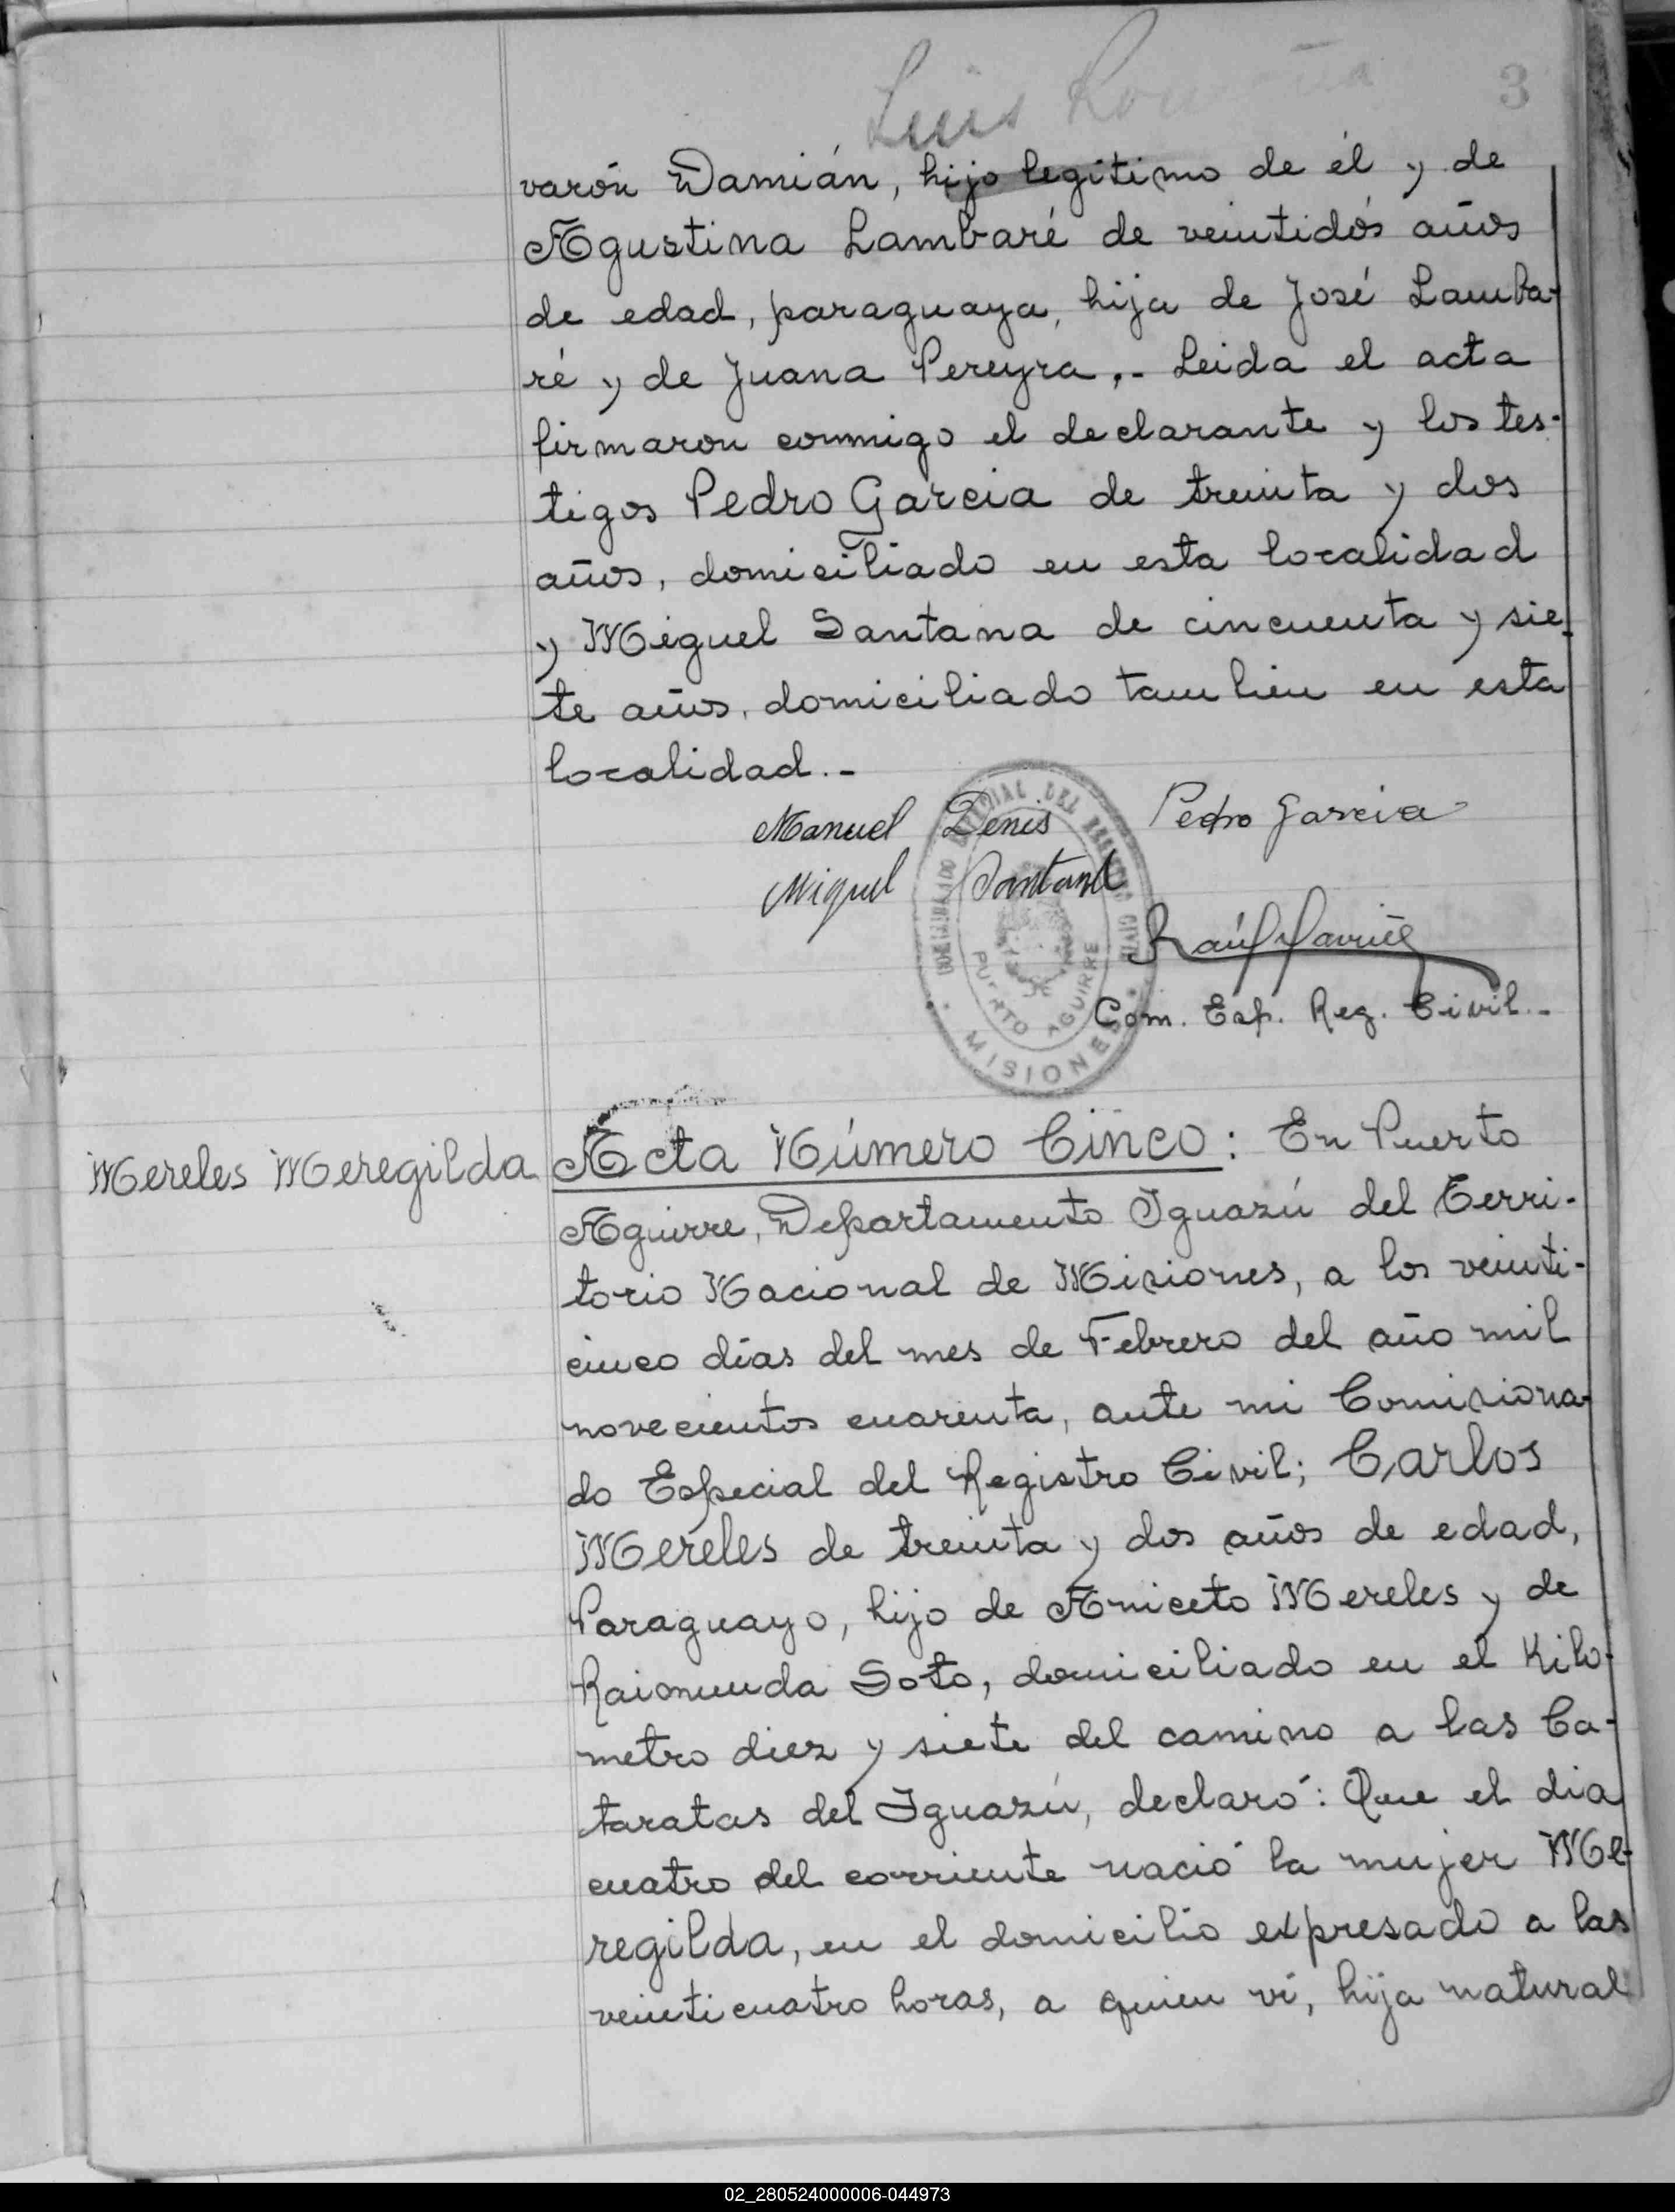 Luis
3
varón Damián, hijo legítimo de él y de
Agustina Lambaré de veintidós años
de edad, paraguaya, hija de José Lamba-
ré y de Juana Pereyra.- Leida el acta
firmaron conmigo el declarante y los tes-
tigos Pedro Garcia de treinta y dos
años, domiciliado en esta localidad
y Miguel Santana de cincuenta y sie-
te años, domiciliado tambien en esta
localidad.-
Manuel Denis Pedro Garcia
Miguel Santana
Raúl
Com. Esp. Reg. Civil.-
DEL REGISTRO CIVIL
PUERTO AGUIRRE
MISIONES
Mereles Meregilda
Acta Número Cinco: En Puerto
Aguirre, Departamento Iguazú del Terri-
torio Nacional de Misiones, a los veinti-
cinco días del mes de Febrero del año mil
novecientos cuarenta, ante mi Comisiona-
do Especial del Registro Civil; Carlos
Mereles de treinta y dos años de edad,
Paraguayo, hijo de Aniceto Mereles y de
Raimunda Soto, domiciliado en el Kilo-
metro diez y siete del camino a las Ca-
taratas del Iguazú, declaró: Que el dia
cuatro del corriente nació la mujer Me-
regilda, en el domicilio expresado a las
veinticuatro horas, a quien ví, hija natural
02_280524000006-044973